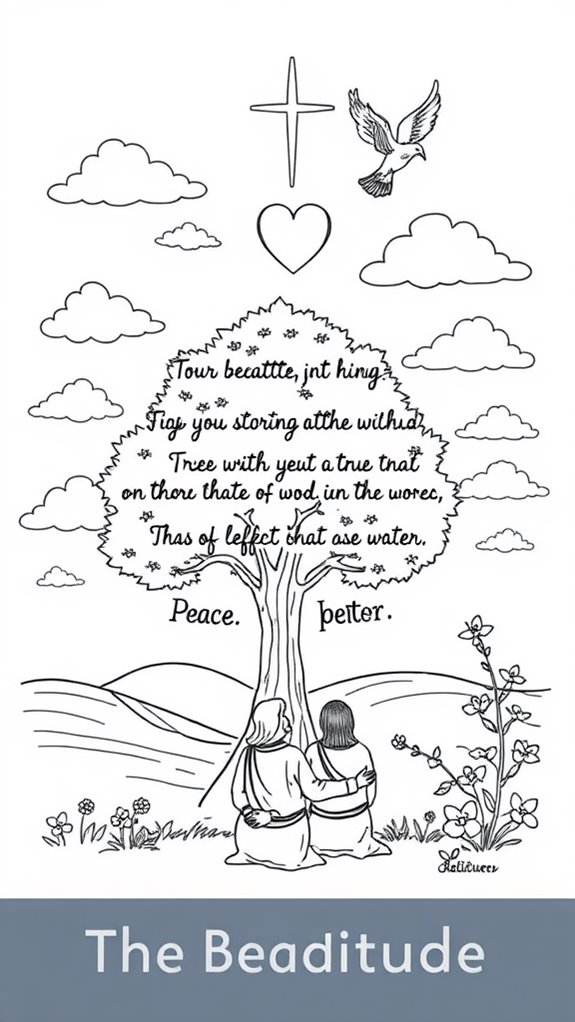 Tour becattte, jnt hinig.
Tiap you storing atthe withid
Tree with yeut a true tnat
on thore thate of wod in the worec,
Thas of leffect chat ase water.
Peace. petter.
The Beaditude